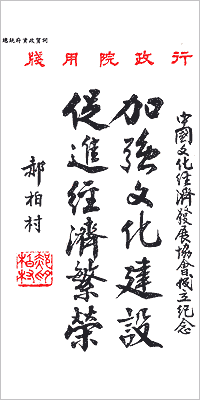 總統府資政用箋
行政院用牋
中國文化經濟發展協會成立紀念
加強文化建設
促進經濟繁榮
郝柏村
郝柏村印